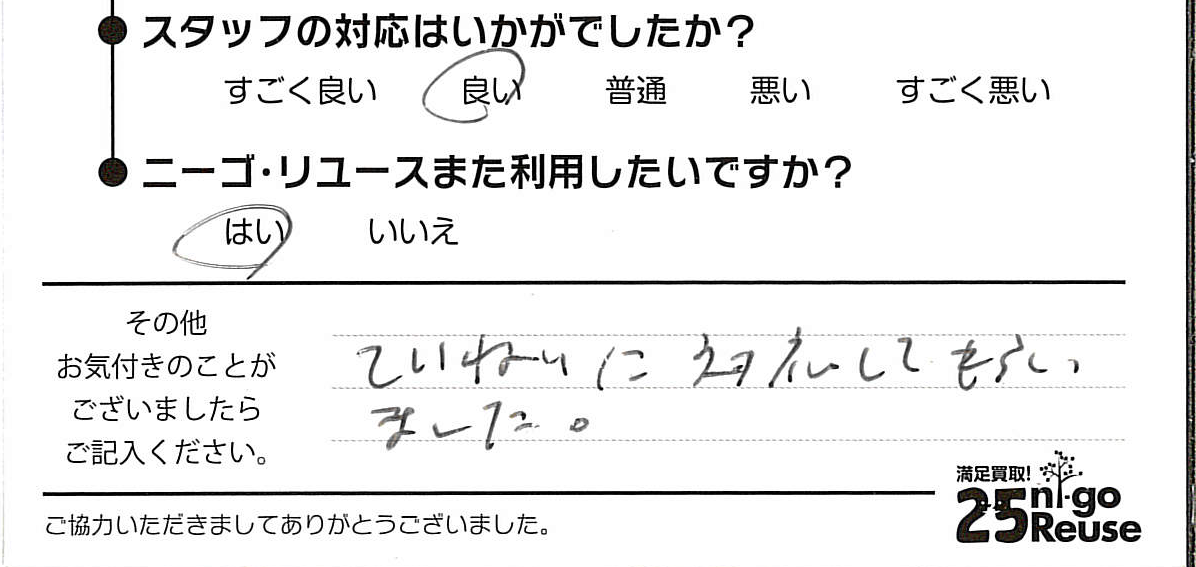 スタッフの対応はいかがでしたか？
すごく良い 良い 普通 悪い すごく悪い
ニーゴ・リユースまた利用したいですか？
はい いいえ
その他
お気付きのことが
ございましたら
ご記入ください。
ていねいに対応してもらい
ました。
満足買取!
25 ni-go
Reuse
ご協力いただきましてありがとうございました。